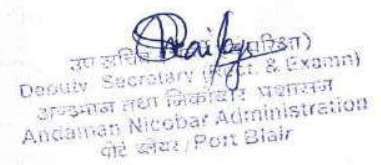 उप सचिव
Deputy Secretary (Rect. & Examn)
अण्डमान तथा निकोबार प्रशासन
Andaman Nicobar Administration
पोर्ट ब्लेयर / Port Blair